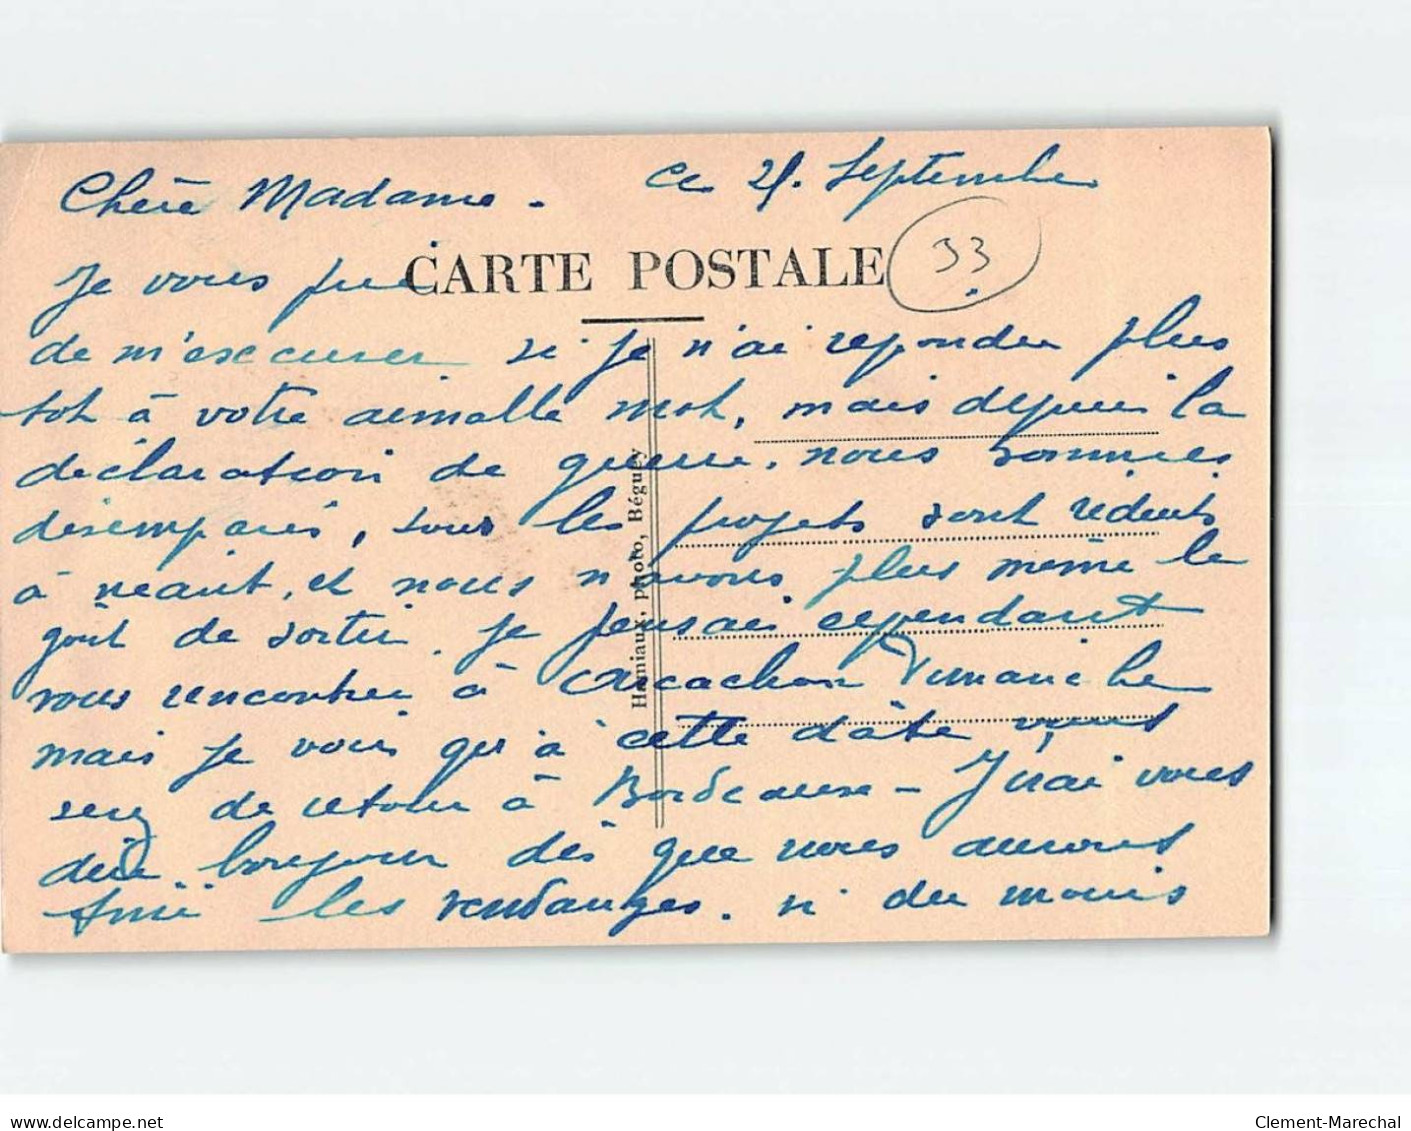 Chère Madame - Ce 21. Septembre
33
CARTE POSTALE
Je vous prie
de m'excuser si je n'ai repondu plus
tot à votre aimable mot, mais depuis la
déclaration de guerre, nous sommes
désemparés, tous les projets sont réduits
à néant, et nous n'avons plus même le
gout de sortir. Je pensais cependant
vous rencontrer à Arcachon Dimanche
mais je vois qu'à cette dâte vous
serez de retour à Bordeaux - J'irai vous
dire bonjour dès que nous aurons
fini les vendanges. si du moins
Hamiaux, photo, Béguey
www.delcampe.net
Clement-Marechal